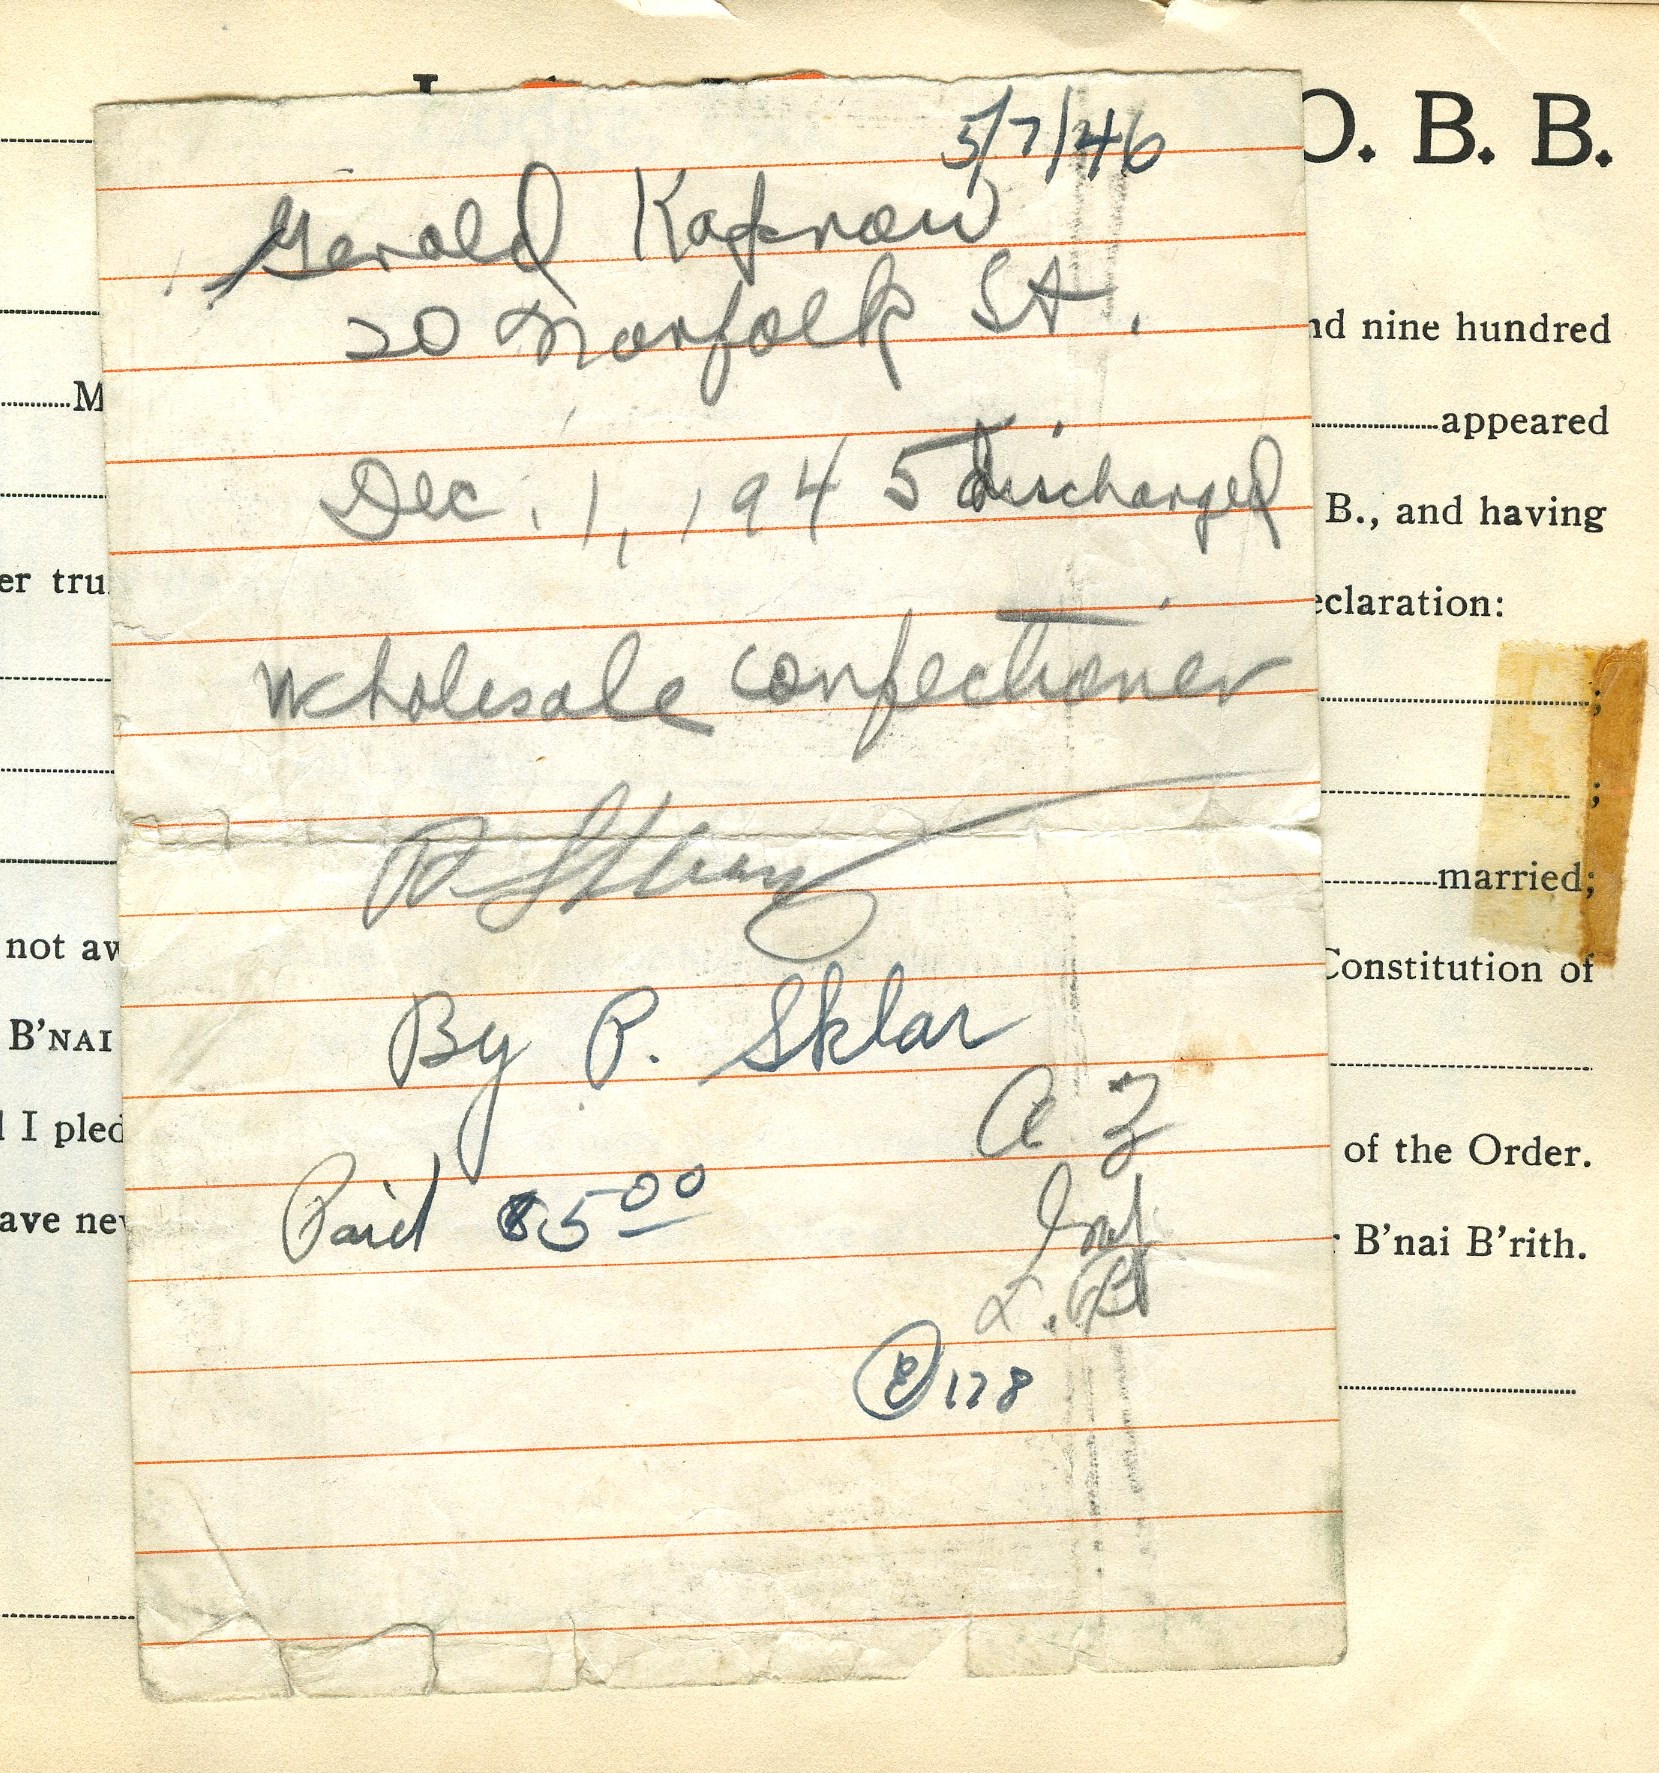 O. B. B.
5/7/46
Gerald Kapnow
20 Norfolk St.
nd nine hundred
M
appeared
Dec. 1, 1945 discharged
B., and having
er tru
eclaration:
Wholesale Confectioner
;
;
married;
not aw
Constitution of
By P. Sklar
B'NAI
A Z
I pled
of the Order.
Paid $5.00
ave nev
B'nai B'rith.
178